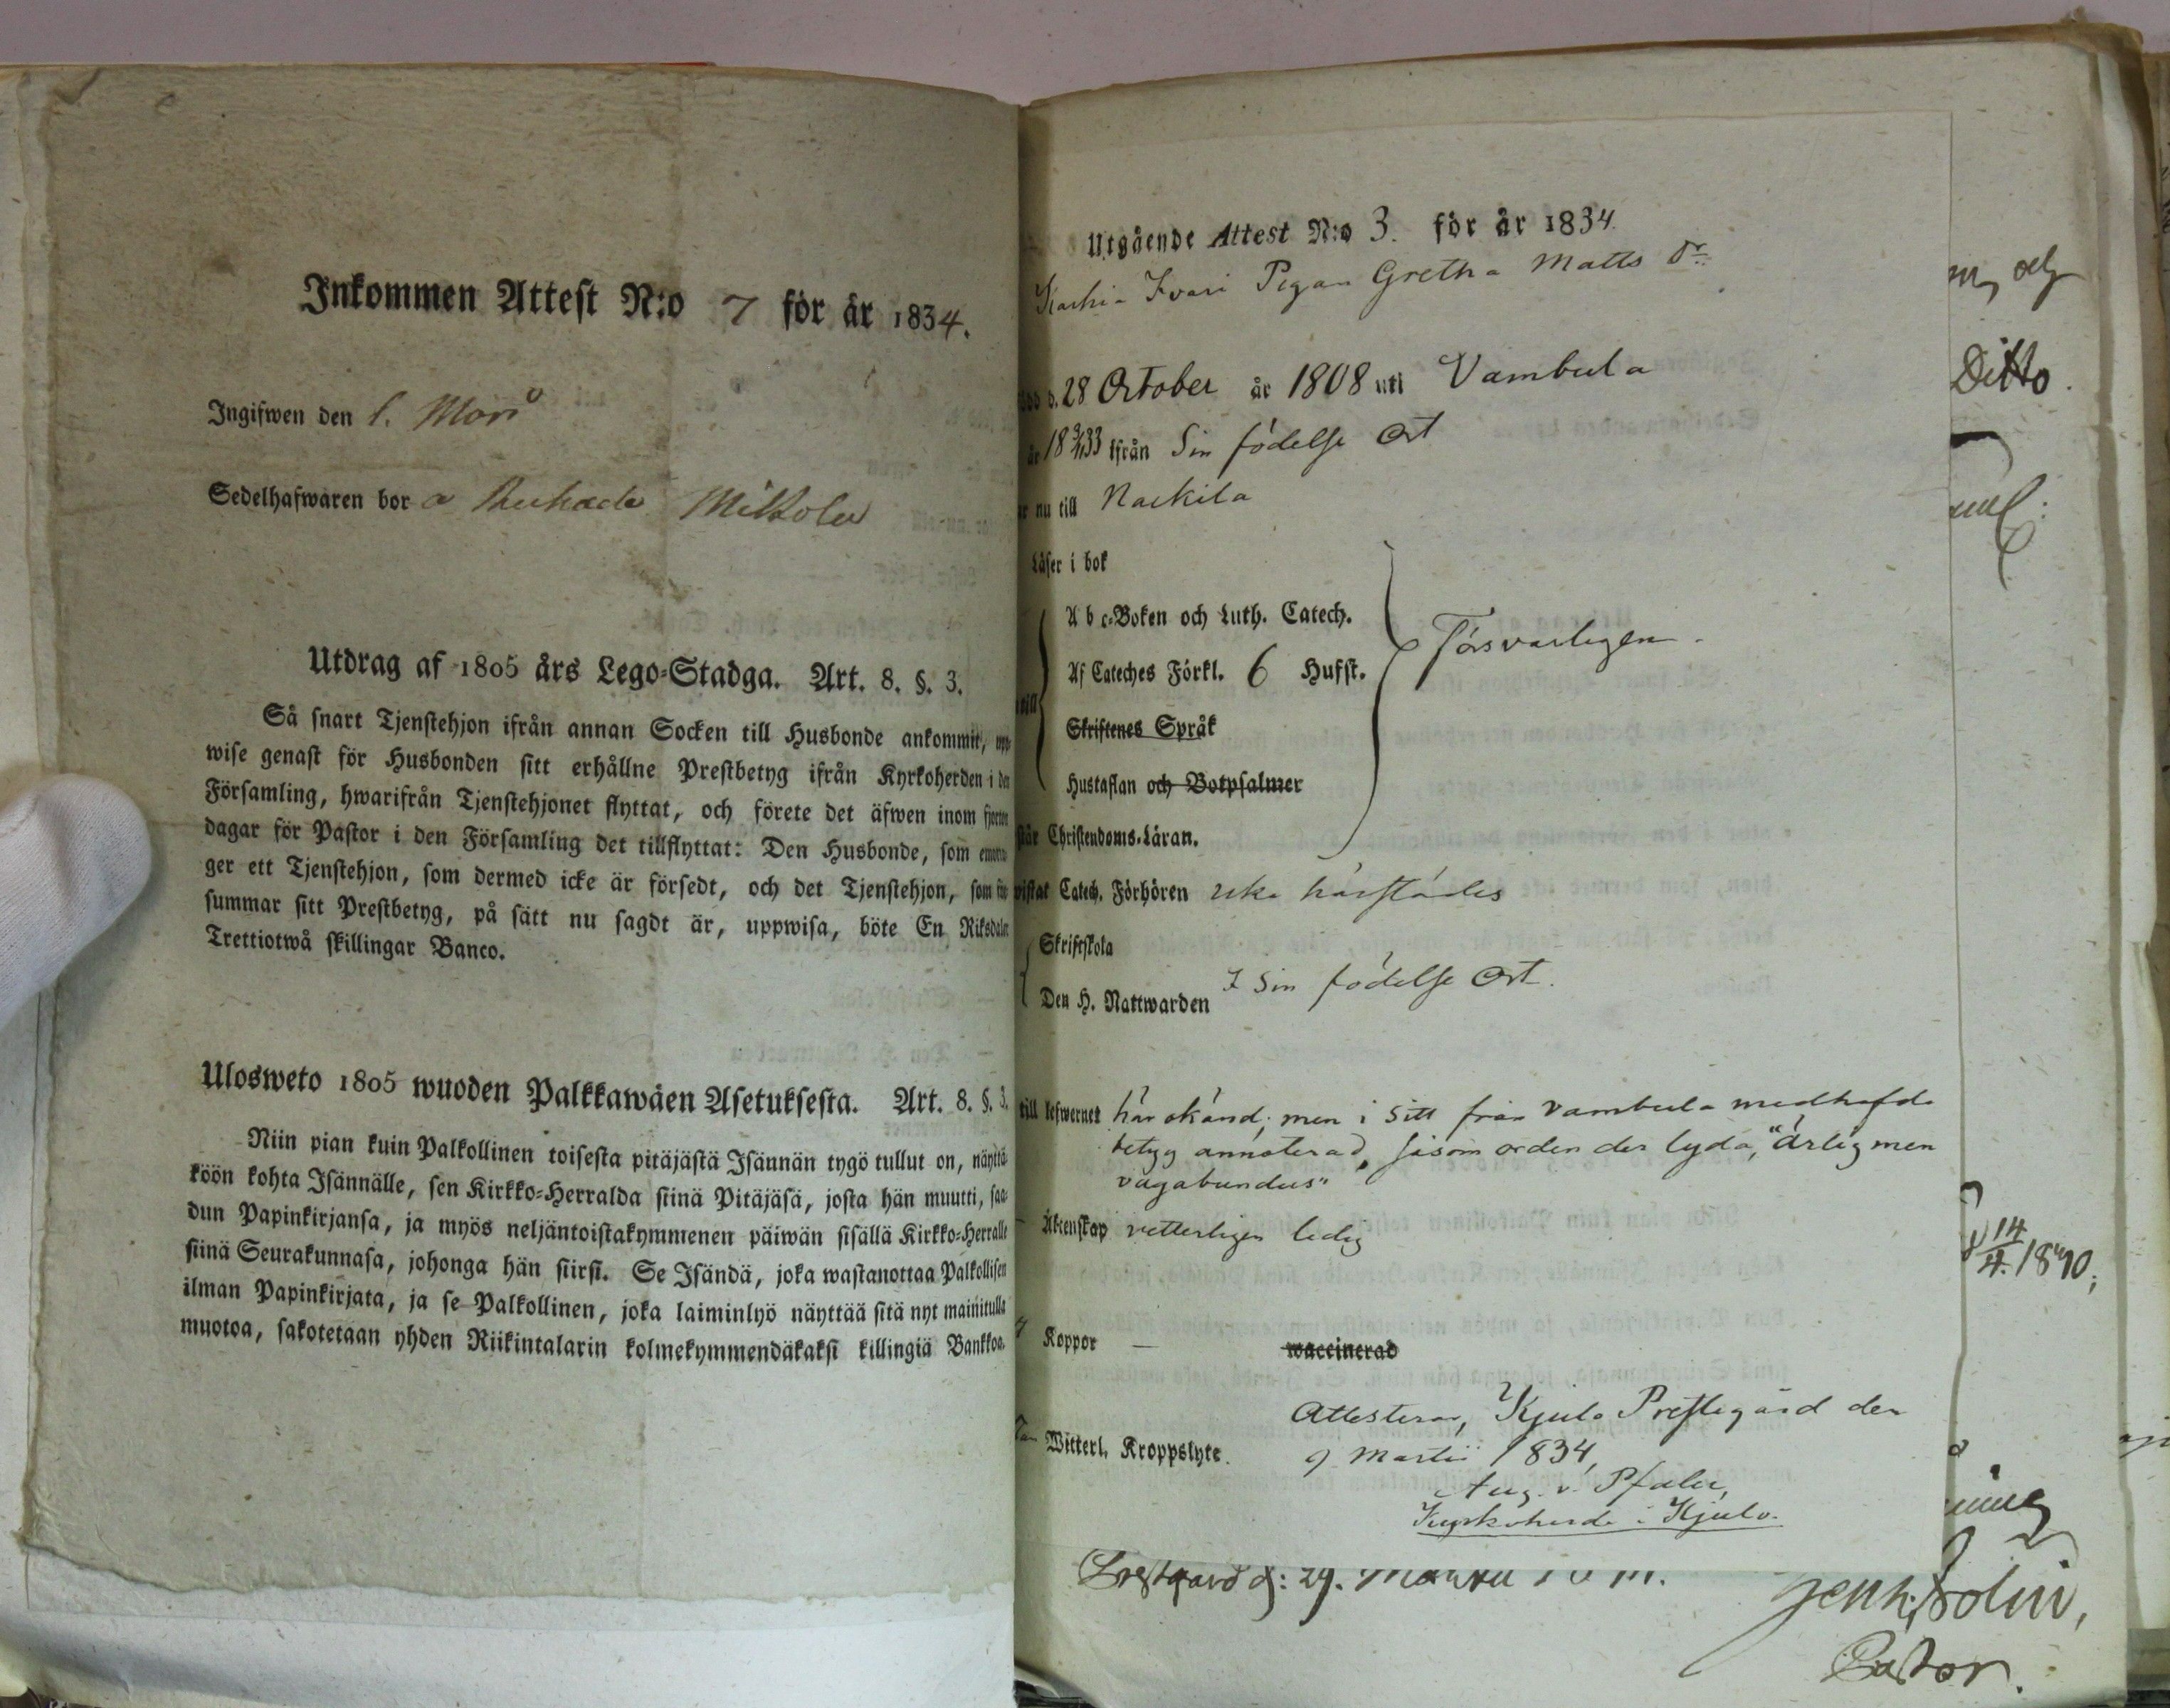 Inkommen Attest N:o 7 för år 1834.
Ingifwen den
Sedelhafwaren bor
Utdrag af 1805 års Lego-Stadga. Art. 8. §. 3.
Så snart Tjenstehjon ifrån annan Socken till Husbonde ankommit, upp-
wise genast för Husbonden sitt erhållne Prestbetyg ifrån Kyrkoherden i den
Församling, hwarifrån Tjenstehjonet flyttat, och förete det äfwen inom fjorton
dagar för Pastor i den Församling det tillflyttat: Den Husbonde, som
ger ett Tjenstehjon, som dermed icke är försedt, och det Tjenstehjon, som
summar sitt Prestbetyg, på sätt nu sagdt är, uppwisa, böte En Riksdaler
Trettiotwå skillingar Banco.
Ulosweto 1805 wuoden Palkkawäen Asetuksesta. Art. 8. §. 3.
Niin pian kuin Palkollinen toisesta pitäjästä Isännän tygö tullut on, näyttä-
köön kohta Isännälle, sen Kirkko-Herralda siinä Pitäjäsä, josta hän muutti, saa-
dun Papinkirjansa, ja myös neljäntoistakymmenen päiwän sisällä Kirkko-Herralle
siinä Seurakunnasa, johonga hän siirsi. Se Isändä, joka wastanottaa Palkollisen
ilman Papinkirjata, ja se Palkollinen, joka laiminlyö näyttää sitä nyt mainitulla
muotoa, sakotetaan yhden Riikintalarin kolmekymmendäkaksi killingiä Bankkoa.
Utgående Attest N:o 3. för år 1834.
Pigan Gretha Matts dr
28 October år 1808 uti Vambula
ifrån Sin födelse Ort
nu till Nackila
Läser i bok
A b c-Boken och Luth. Catech.
Af Cateches Förkl. 6 Hufst.
Försvarligen
Skriftenes Språk
Hustaflan och Botpsalmer
Christendoms-Läran.
Catech. Förhören icke härstädes
Skriftskola
Den H. Nattwarden
I Sin födelse Ort.
till lefwernet här okänd, men i sitt från Vambula medhafde
betyg annoterad, såsom orden der lyda, "ärlig men
vagabundus"
Äktenskap vetterligen ledig
Koppor — waccinerad
Witterl. Kroppslyte.
Attesterar, Kjulo Prestegård den
9 Martii 1834,
Aug. v. Pfaler,
Kyrkoherde i Kjulo.
Ditto
14/4 1840;
Prestgård d: 29.
Pastor.